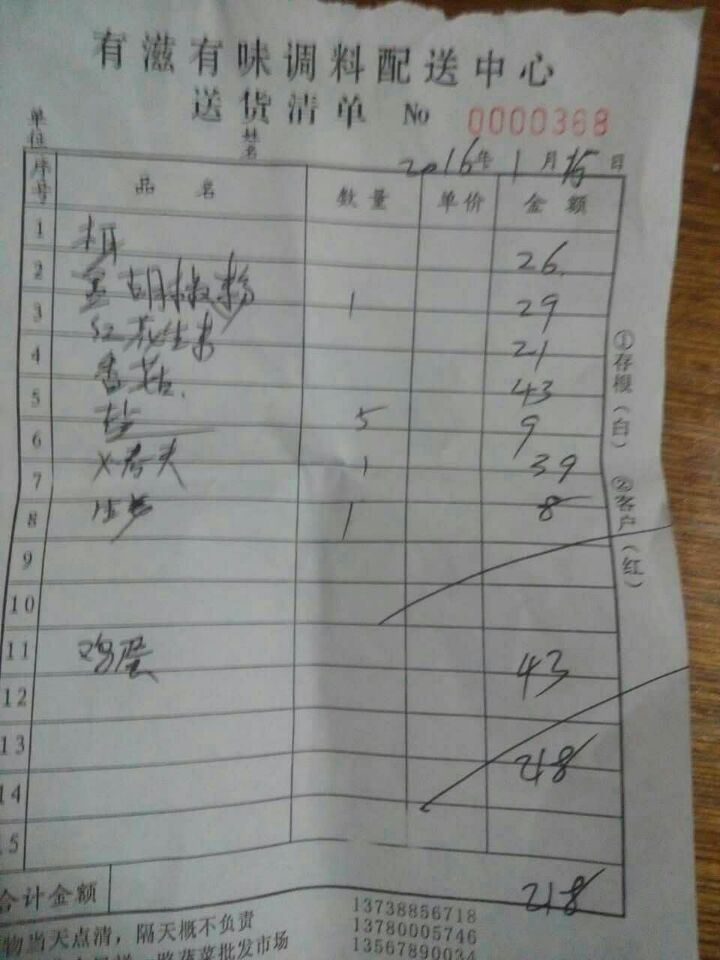 有滋有味调料配送中心
送货清单 No 0000368
单位 姓名
2016年 1月 15日
序号 品名 数量 单价 金额
1 26
2 胡椒粉 1 29
3 红花生米 21
4 香菇 43
5 盐 5 9
6 1 39
7 生粉 1 8
8
9
10
11 鸡蛋 43
12
13 218
14
15
合计金额 218
物当天点清，隔天概不负责
蔬菜批发市场
13738856718
13780005746
13567890034
①存根（白） ②客户（红）